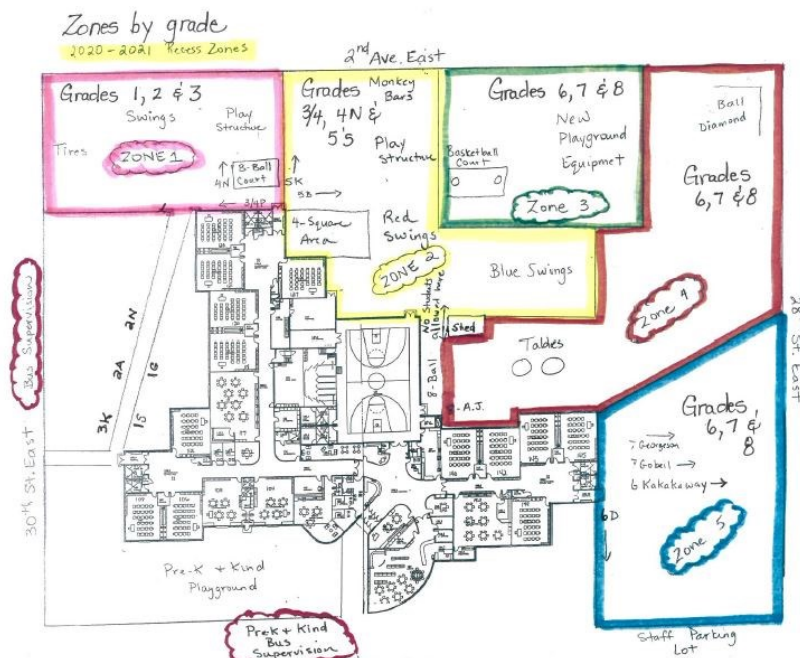 Zones by grade
2020-2021 Recess Zones
2nd Ave. East
Grades 1, 2 & 3
Swings
Tires
Play
Structure
ZONE 1
4N
8-Ball
Court
5K
3/4P
Grades
3/4, 4N &
5's
Monkey
Bars
Play
structure
5B
4-Square
Area
Red
Swings
ZONE 2
Blue Swings
No students
allowed here
Grades 6, 7 & 8
New
Playground
Equipmet
Basketball
Court
Zone 3
Ball
Diamond
Grades
6, 7 & 8
Zone 4
28 St. East
Shed
Tables
8-Ball
8-A.J.
Grades
6, 7 &
8
7 Georgeson
7 Gobeil
6 Kakakaway
6D
Zone 5
Staff Parking
Lot
Bus Supervision
30th St. East
3K 2A 2N
1S 1G
Pre-K + Kind
Playground
PreK + Kind
Bus
Supervision